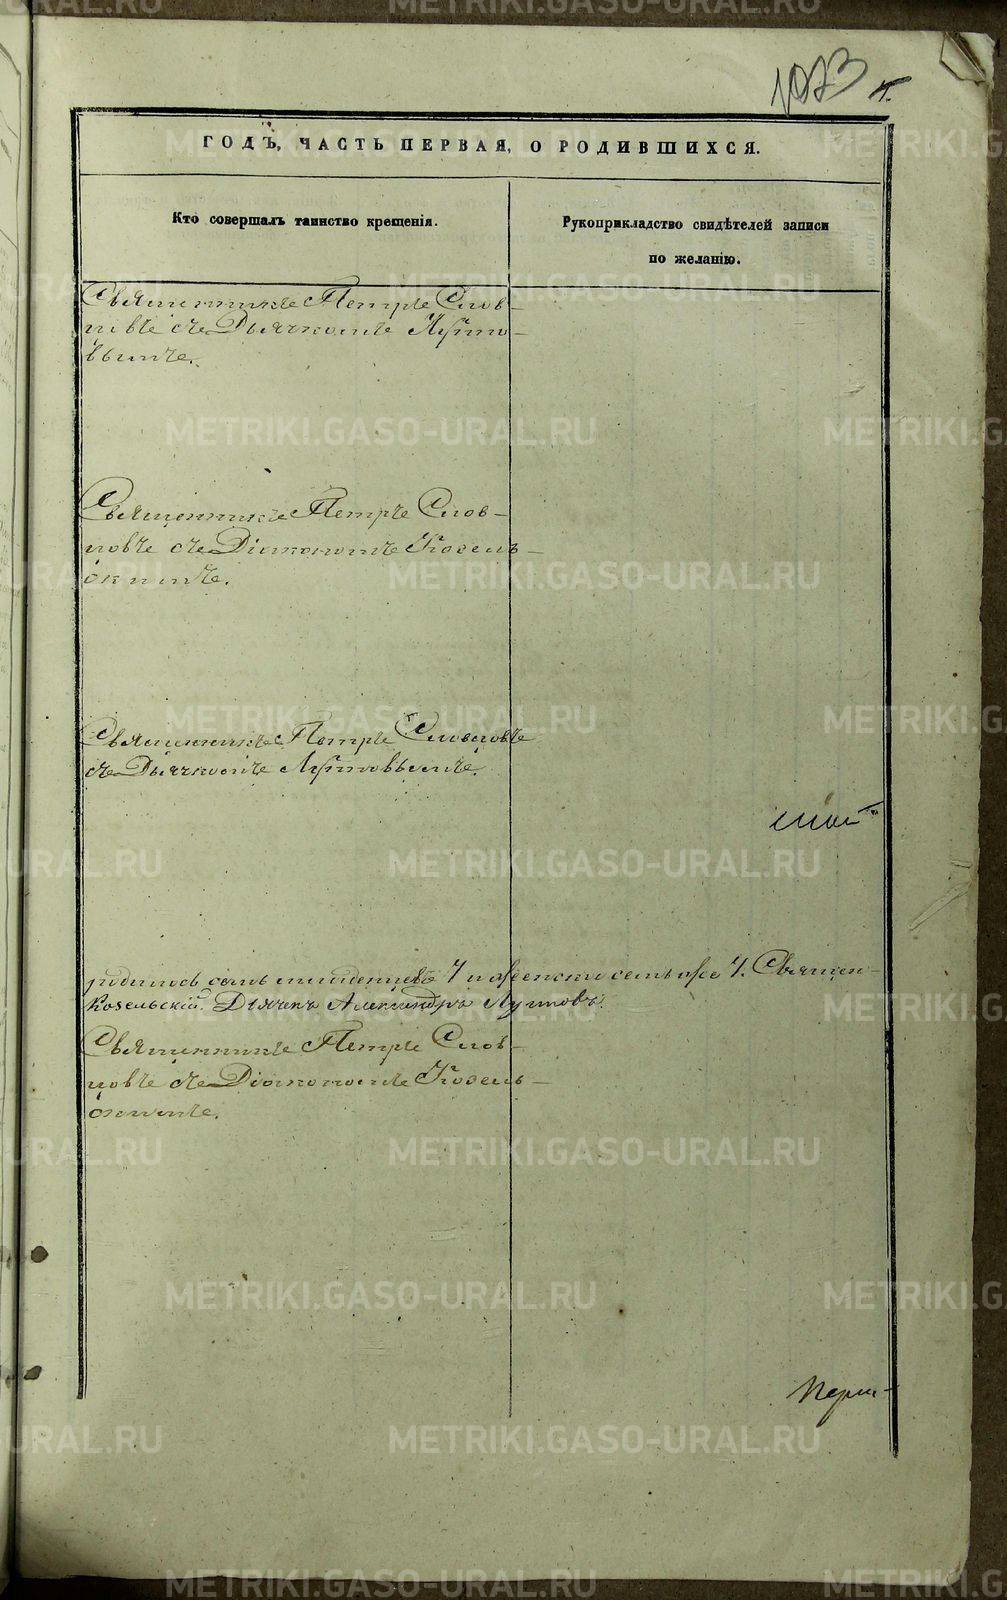 1073
ГОДЪ, ЧАСТЬ ПЕРВАЯ, О РОДИВШИХСЯ.
Кто совершалъ таинство крещенія.
Рукоприкладство свидѣтелей записи
по желанію.
Священникъ Петръ Слов-
цовъ съ Дьячкомъ
Священникъ Петръ Слов-
цовъ съ Діакономъ Козель-
скимъ.
Священникъ Петръ Словцовъ
съ Дьячкомъ
родилось семь младенцевъ 7 и женска семь же 7. Священ-
Козельскій. Дьячек Александръ
Священникъ Петръ Слов-
цовъ съ Діакономъ Козель-
скимъ.
METRIKI.GASO-URAL.RU